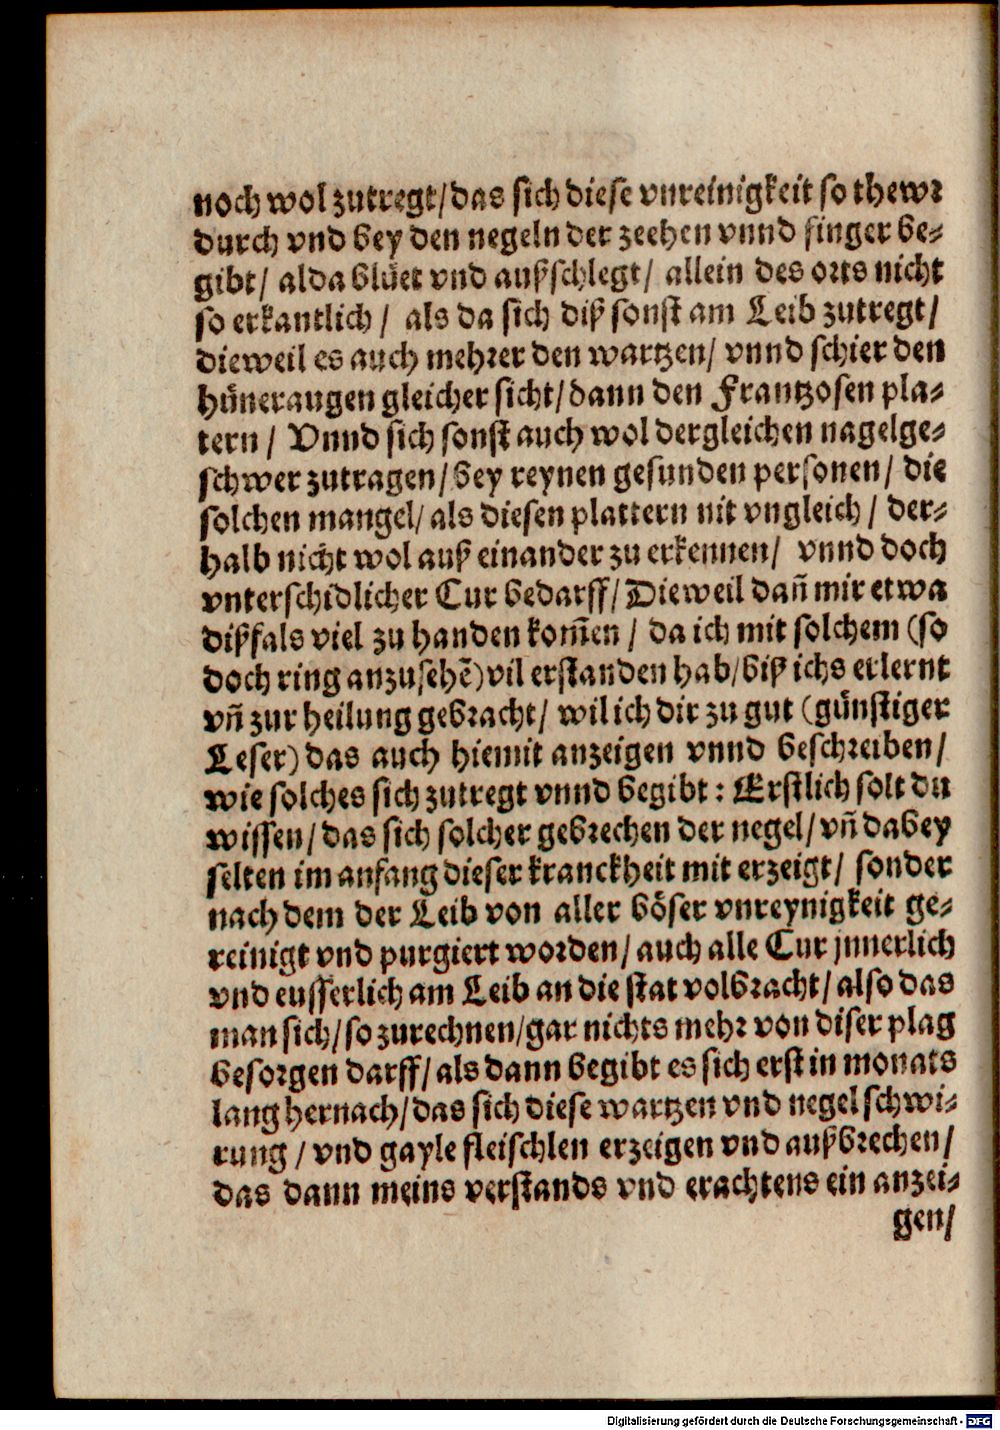 noch wol zutregt/das sich diese vnreinigkeit so thewr
durch vnd bey den negeln der zeehen vnnd finger be-
gibt/ alda blüet vnd außschlegt/ allein des orts nicht
so erkantlich/ als da sich diß sonst am Leib zutregt/
dieweil es auch mehrer den wartzen/ vnnd schier den
hüneraugen gleicher sicht/dann den Frantzosen pla-
tern/ Vnnd sich sonst auch wol dergleichen nagelge-
schwer zutragen/bey reynen gesunden personen/ die
solchen mangel/als diesen plattern nit vngleich/ der-
halb nicht wol auß einander zu erkennen/ vnnd doch
vnterschidlicher Cur bedarff/Dieweil dañ mir etwa
dißfals viel zu handen kom̃en/ da ich mit solchem (so
doch ring anzusehẽ)vil erstanden hab/biß ichs erlernt
vñ zur heilung gebracht/ wil ich dir zu gut (günstiger
Leser) das auch hiemit anzeigen vnnd beschreiben/
wie solches sich zutregt vnnd begibt: Erstlich solt du
wissen/das sich solcher gebrechen der negel/vñ dabey
selten im anfang dieser kranckheit mit erzeigt/ sonder
nach dem der Leib von aller böser vnreynigkeit ge-
reinigt vnd purgiert worden/auch alle Cur jnnerlich
vnd eusserlich am Leib an die stat volbracht/also das
man sich/so zurechnen/gar nichts mehr von diser plag
besorgen darff/als dann begibt es sich erst in monats
lang hernach/das sich diese wartzen vnd negelschwi-
rung/vnd gayle fleischlen erzeigen vnd außbrechen/
das dann meins verstands vnd erachtens ein anzei-
gen/
Digitalisierung gefördert durch die Deutsche Forschungsgemeinschaft - DFG